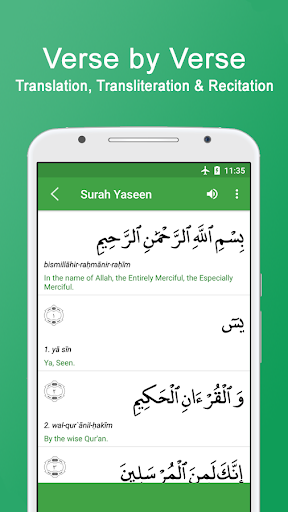 Verse by Verse
Translation, Transliteration & Recitation
11:35
Surah Yaseen
بِسْمِ ٱللَّهِ ٱلرَّحْمَٰنِ ٱلرَّحِيمِ
bismillāhir-raḥmānir-raḥīm
In the name of Allah, the Entirely Merciful, the Especially
Merciful.
يسٓ
١
1. yā sīn
Ya, Seen.
وَٱلْقُرْءَانِ ٱلْحَكِيمِ
٢
2. wal-qur`ānil-ḥakīm
By the wise Qur'an.
إِنَّكَ لَمِنَ ٱلْمُرْسَلِينَ
٣